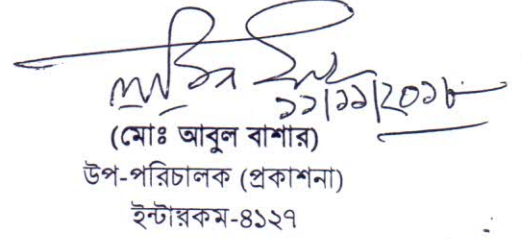 ১১/১১/২০১৮
(মোঃ আবুল বাশার)
উপ-পরিচালক (প্রকাশনা)
ইন্টারকম-৪১২৭